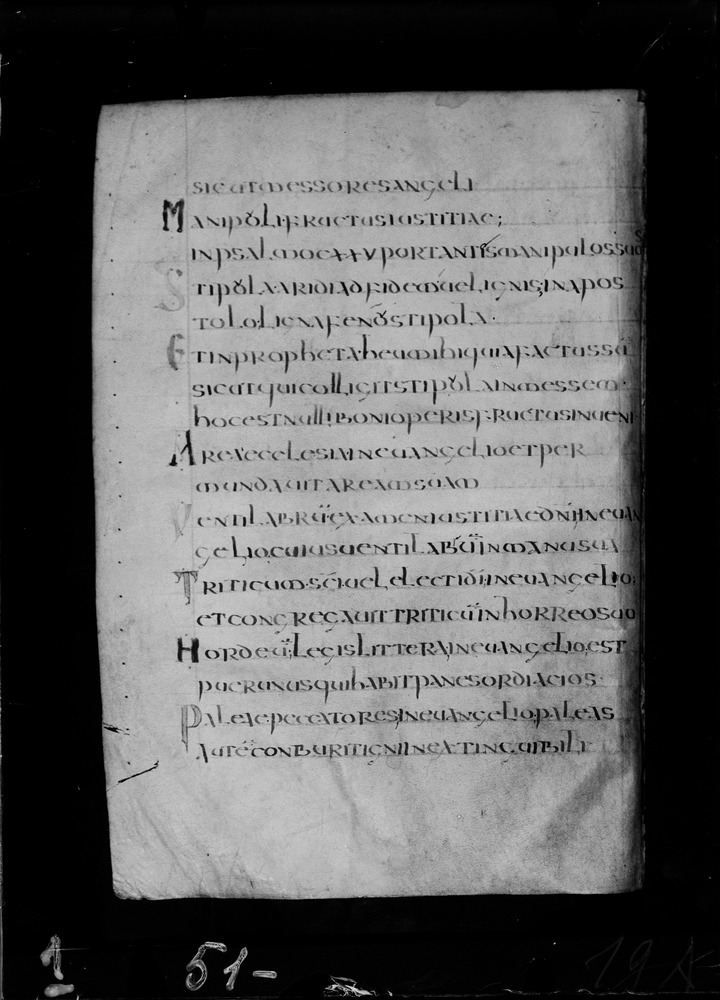 sicut messores angeli
Manipuli· fructus iustitiae;
in psalmo cxxv portantes manipulos suos
Stipula aridi ad fidem uel ignis; in apos
tolo· ligna fenū stipola·
Et in propheta· heu mihi quia factus sū
sicut qui colligit stipulain messem·
hoc est nulli boni operis fructus inueni
Area· ecclesia· in euangelio et per
mundauit aream suam
Ventilabrū· examen iustitiae dn̄i· in euan
gelio· cuius uentilabrū in manu sua
Triticum· sc̄i uel electi di· in euangelio·
et congregauit triticū in horreo suo
Hordeū· legis littera; in euangelio· est
puer unus qui habit panes ordiacios·
Paleae peccatores; in euangelio· paleas
autē conburit igni inextinguibili
1
51-
19A